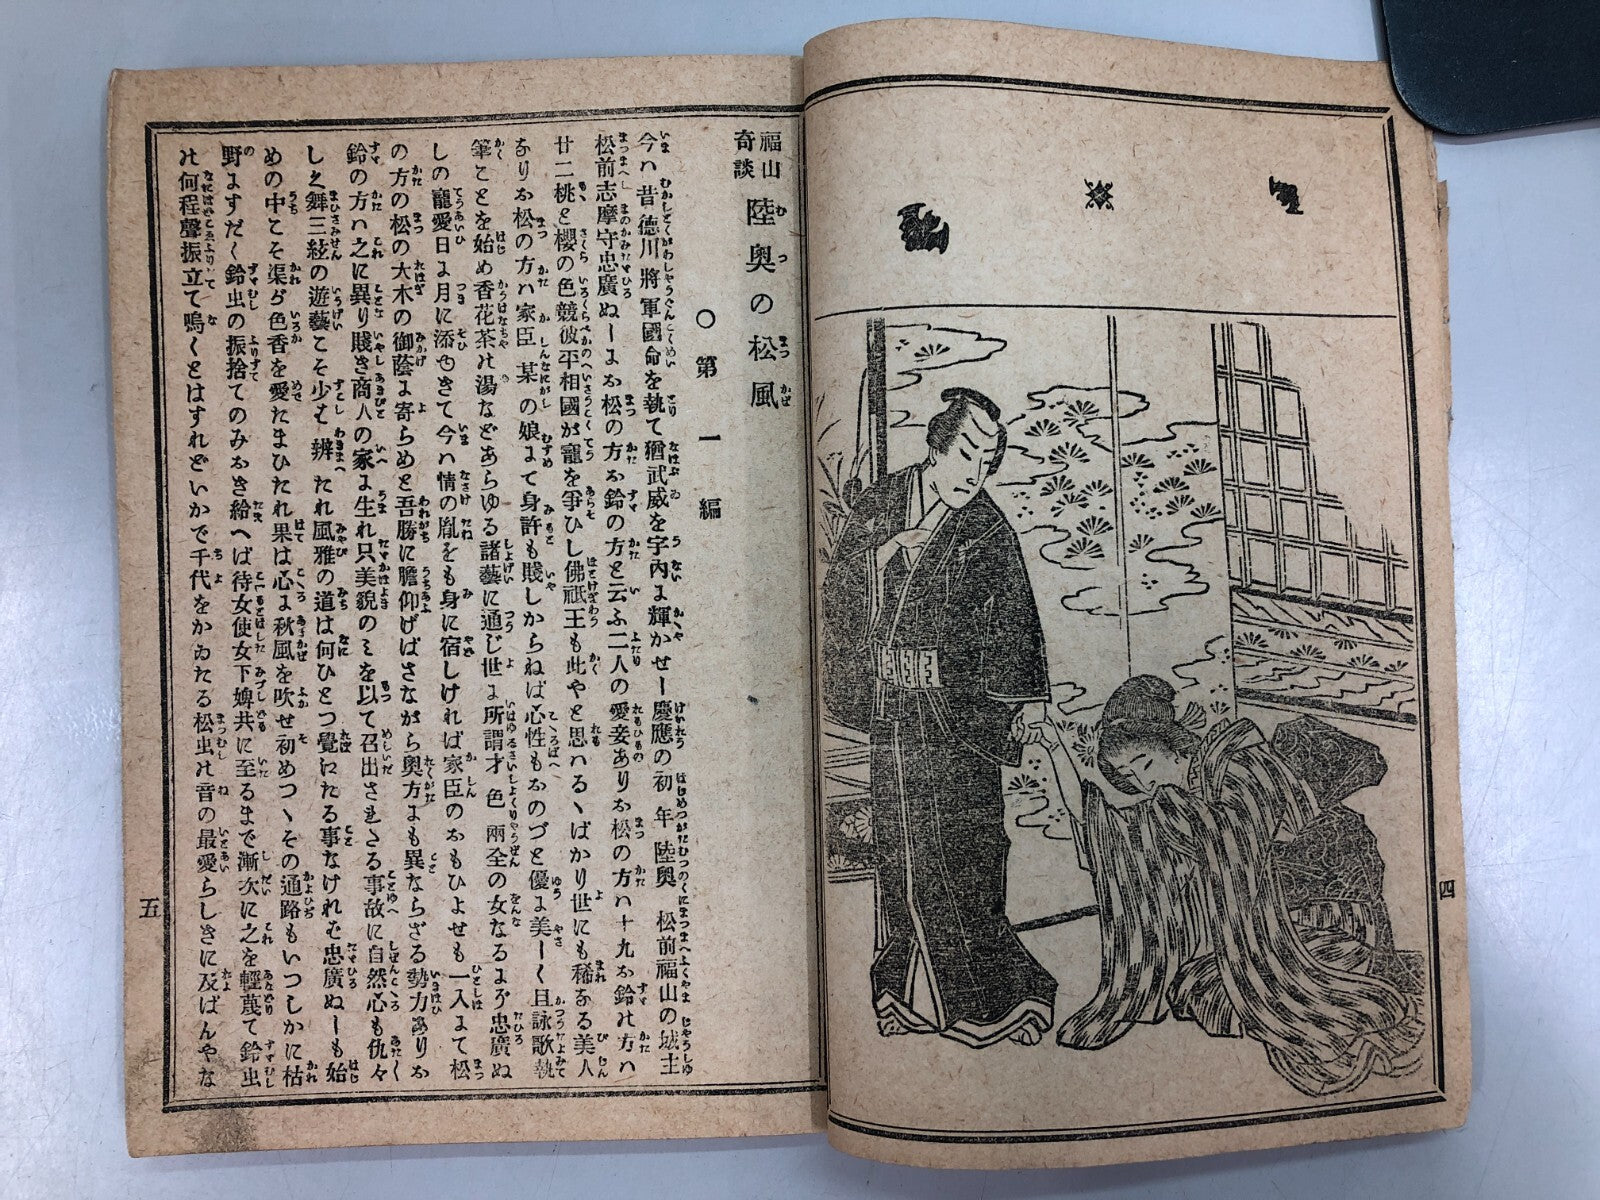 四
福山
奇談
陸奥の松風
○第一編
今ハ昔德川將軍國命を執て猶武威を宇內ま輝かせー慶應の初年陸奧松前福山の城主
松前志摩守忠廣ぬーまお松の方お鈴の方と云ふ二人の愛妾ありお松の方ハ十九お鈴の方ハ
廿二桃と櫻の色競彼平相國が寵を爭ひし佛祇王も此やと思ハるゝばかり世にも稀なる美人
なりお松の方ハ家臣某の娘まて身許も賤しからねば心性もおのづと優ま美ーく且詠歌執
筆ことを始め香花茶の湯などあらゆる諸藝に通じ世ま所謂才色兩全の女なるまぞ忠廣ぬ
しの寵愛日ま月に添ゆきて今ハ情の胤をも身に宿しければ家臣のおもひよせも一入まて松
の方の松の大木の御蔭ま寄らめと吾勝に膽仰げばさながら奧方まも異ならざる勢力ありお
鈴の方ハ之に異り賤き商人の家ま生れ只美貌のミを以て召出されたる事故に自然心も仇々
しく舞三絃の遊藝こそ少しむ辨たれ風雅の道は何ひとつ覺にたる事なけれむ忠廣ぬーも始
めの中こそ渠が色香を愛たまひたれ果は心ま秋風を吹せ初めつゝその通路もいつしかに枯
野ますだく鈴虫の振捨てのみおき給へば待女使女下婢共に至るまで漸次に之を輕蔑て鈴虫
の何程聲振立て鳴くとはすれどいかで千代をかゐたる松虫の音の最愛らしきに及ばんやな
五